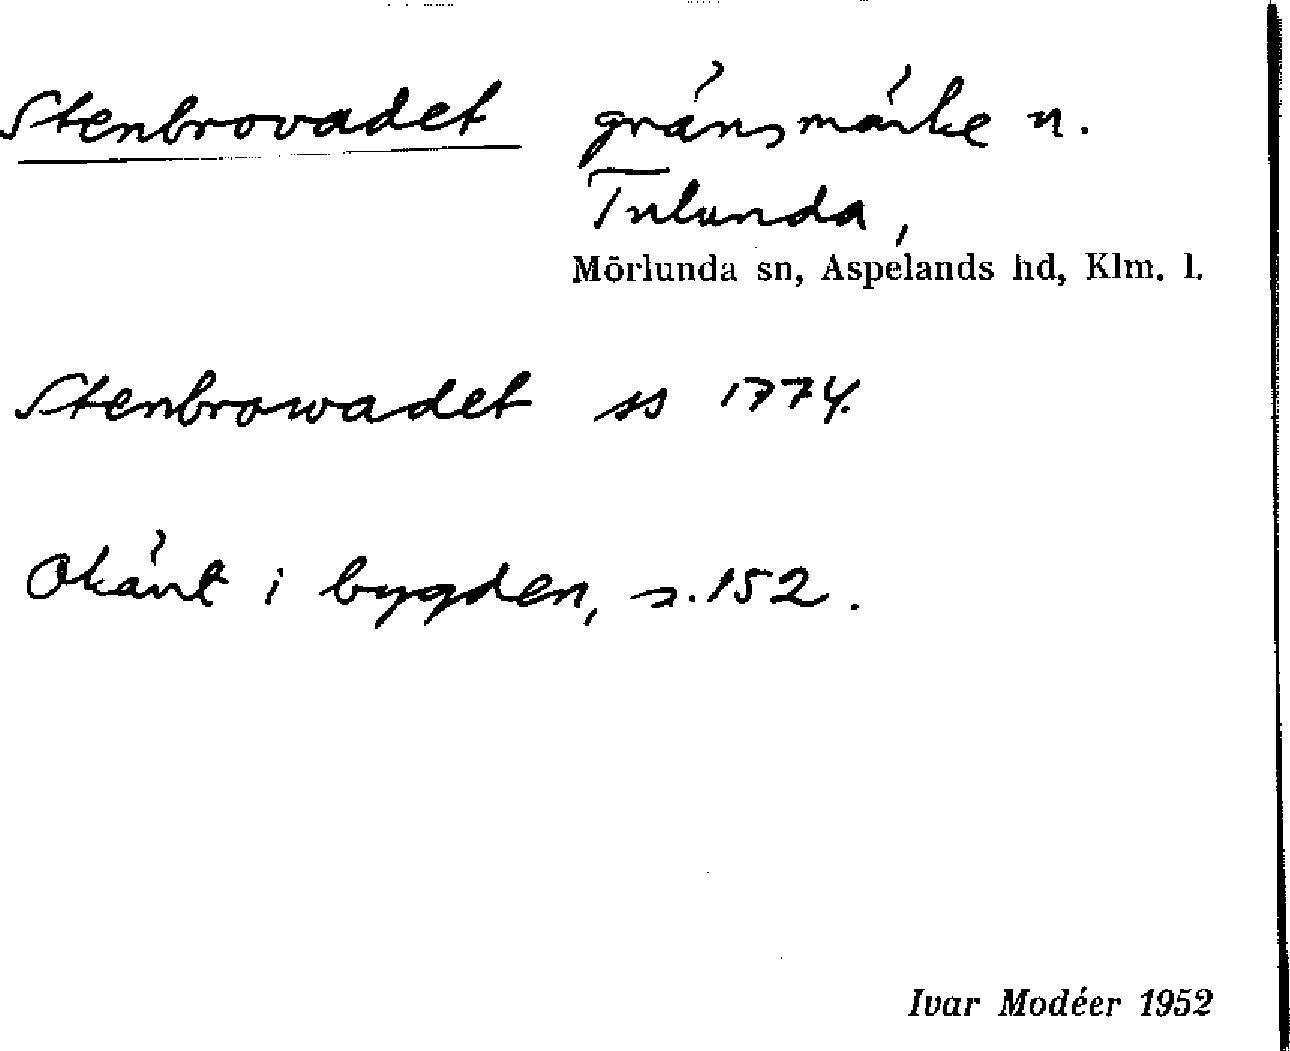 Stenbrovadet gränsmärke n.
Tulunda,
Mörlunda sn, Aspelands hd, Klm. l.
Stenbrowadet ss 1774.
Okänt i bygden, s. 152.
Ivar Modéer 1952